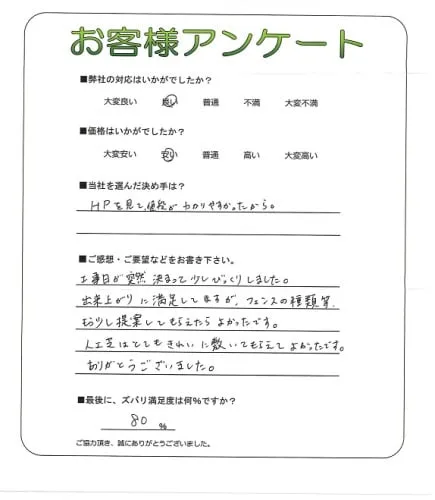 お客様アンケート
■弊社の対応はいかがでしたか？
大変良い 良い 普通 不満 大変不満
■価格はいかがでしたか？
大変安い 安い 普通 高い 大変高い
■当社を選んだ決め手は？
HPを見て、値段がわかりやすかったから。
■ご感想・ご要望などをお書き下さい。
工事日が突然決まって少しびっくりしました。
出来上がりに満足してますが、フェンスの種類等、
もう少し提案してもらえたらよかったです。
人工芝はとてもきれいに敷いてもらえてよかったです。
ありがとうございました。
■最後に、ズバリ満足度は何％ですか？
80 %
ご協力頂き、誠にありがとうございました。